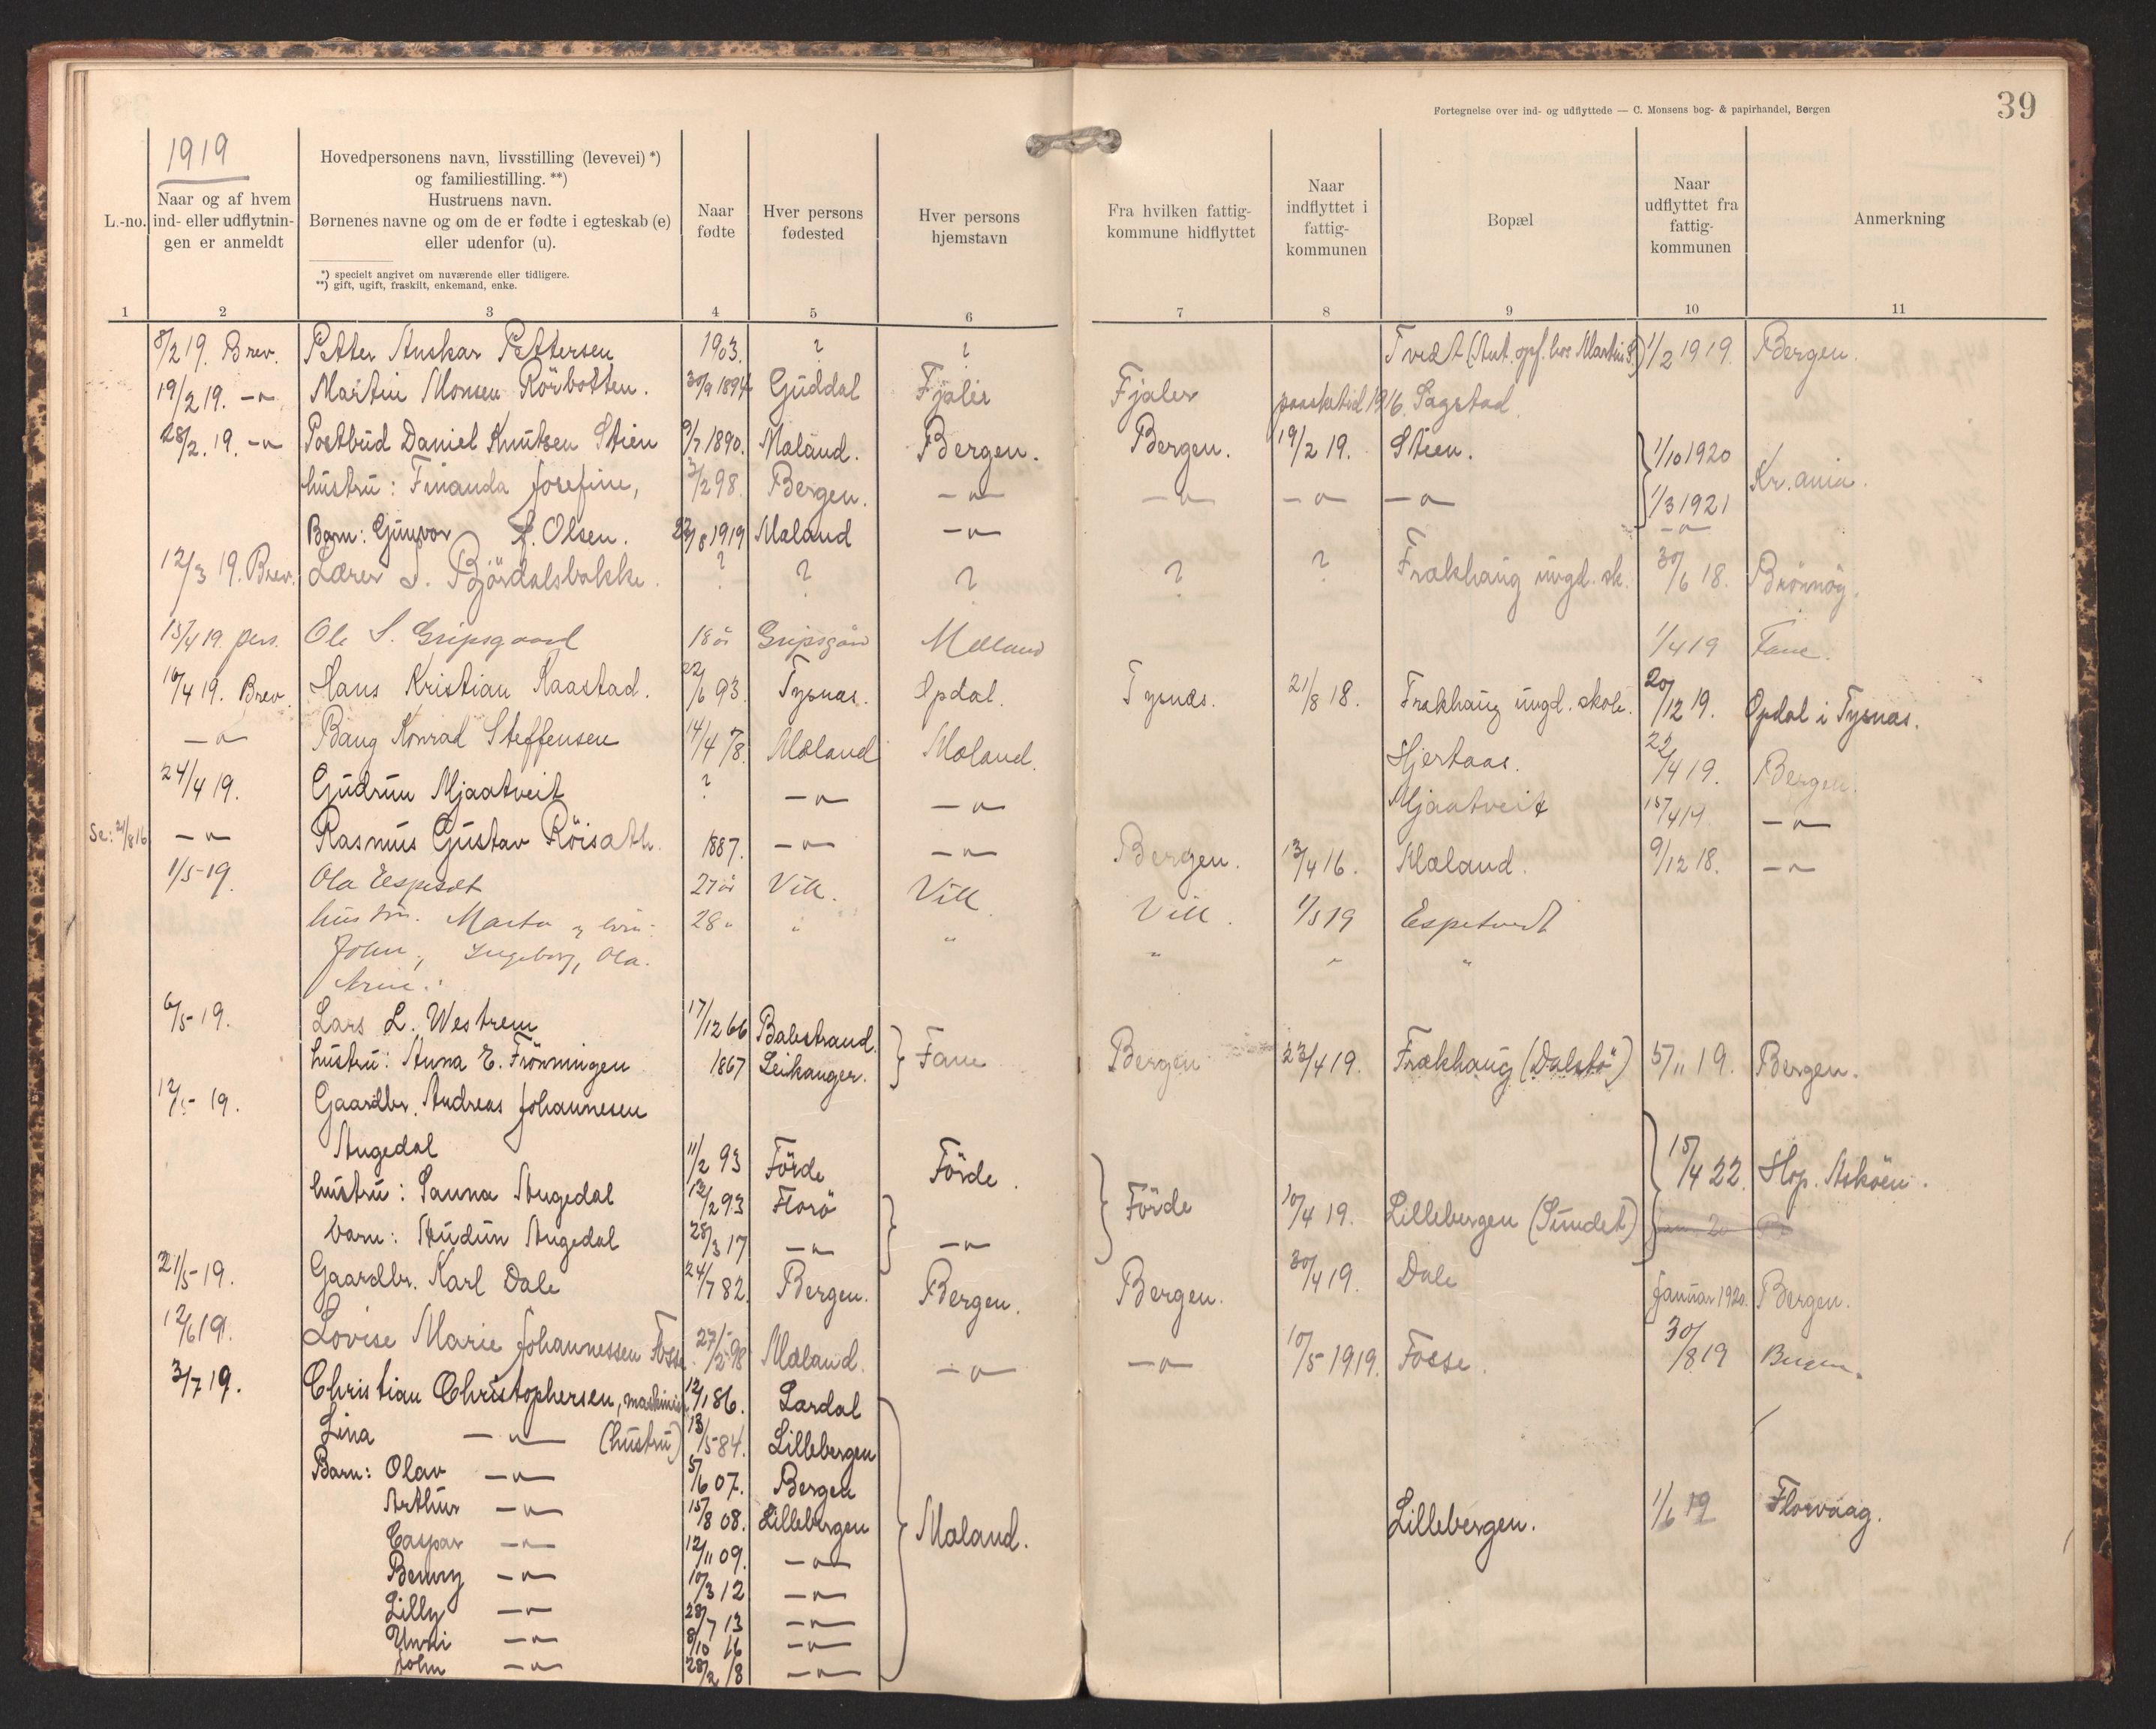 Fortegnelse over ind- og udflyttede — C. Monsens bog- & papirhandel, Bergen
39
1919
L.-no.
Naar og af hvem
ind- eller udflytnin-
gen er anmeldt
Hovedpersonens navn, livsstilling (levevei) *)
og familiestilling. **)
Hustruens navn.
Børnenes navne og om de er fødte i egteskab (e)
eller udenfor (u).
*) specielt angivet om nuværende eller tidligere.
**) gift, ugift, fraskilt, enkemand, enke.
Naar
fødte
Hver persons
fødested
Hver persons
hjemstavn
Fra hvilken fattig-
kommune hidflyttet
Naar
indflyttet i
fattig-
kommunen
Bopæl
Naar
udflyttet fra
fattig-
kommunen
Anmerkning
1 2 3 4 5 6 7 8 9 10 11
8/2 19. Brev. Petter Anskar Pettersen 1903. ? ? Tvedt (Ant. opf. hos Martin S.) 1/2 1919. Bergen.
19/2 19. —"— Martin Monsen Rörbotten. 30/9 1894 Guddal Fjaler Fjaler paasketid 1916. Sagstad.
28/2. 19. —"— Postbud Daniel Knutsen Stien 9/7 1890. Mæland. Bergen. Bergen. 19/2 19. Stien. 1/10 1920
hustru: Finanda Josefine, 3/2 98. Bergen. —"— —"— —"— —"— 1/3 1921 Kr.ania.
Barn: Gunvor S. Olsen. 22/8 1919 Mæland —"— —"—
12/3 19. Brev. Lærer S. Björdalsbakke. ? ? ? ? ? Frækhaug ungd. sk. 30/6 18. Brönnöy.
15/4 19. pers. Ole S. Gripsgaard 18 år Gripsgår Mælland 1/4 19 Fane.
16/4 19. Brev. Hans Kristian Kaastad. 22/6 93. Tysnæs. Opdal. Tysnæs. 21/8 18. Frækhaug ungd. skole. 20/12 19. Opdal i Tysnæs.
—"— Bang Konrad Steffensen 14/4 78. Mæland Mæland. Hjertaas. 22/4 19. Bergen.
24/4 19. Gudrun Mjaatveit ? —"— —"— Mjaatveit 15/4 19. —"—
Se: 21/8 16 —"— Rasmus Gustav Röisæth. 1887. —"— —"— Bergen. 13/4 16. Mæland. 9/12 18. —"—
1/5 19. Ola Espedt 27 år Vik. Vik. Vik. 1/5 19 Espetvedt
hustru. Marta 28 " " " " " "
John, Ingeborg, Ola.
Arne.
6/5 19. Lars L. Westrem 17/12 66 Balestrand.
hustru: Anna E. Frönningen 1867 Leikanger. Fane Bergen 23/4 19. Frækhaug (Dalstö) 5/11 19. Bergen.
12/5 19. Gaardbr. Andreas Johannesen
Angedal 11/2 93 Förde Förde. 15/4 22. Hop. Asköen.
hustru: Sanna Angedal 12/2 93 Florö Förde 10/4 19. Lillebergen (Sundet)
barn: Audun Angedal 28/3 17 —"— —"—
21/5 19. Gaardbr. Karl Dale 24/7 82. Bergen. Bergen. Bergen. 30/4 19. Dale Januar 1920. Bergen.
12/6 19. Lovise Marie Johannessen Fosse 27/2 98 Mæland. —"— —"— 10/5 1919. Fosse. 30/8 19 Bergen.
3/7 19. Christian Christophersen, maskinist 12/1 86. Lærdal
Lina —"— (hustru) 13/5 84. Lillebergen
Barn: Olav —"— 5/6 07. Bergen
Arthur —"— 15/8 08. Lillebergen Mæland. Lillebergen. 1/6 19 Florvaag.
Caspar —"— 12/11 09. —"—
Benny —"— 10/3 12 —"—
Lilly —"— 28/7 13 —"—
Unni —"— 8/10 16 —"—
John —"— 28/2 18 —"—